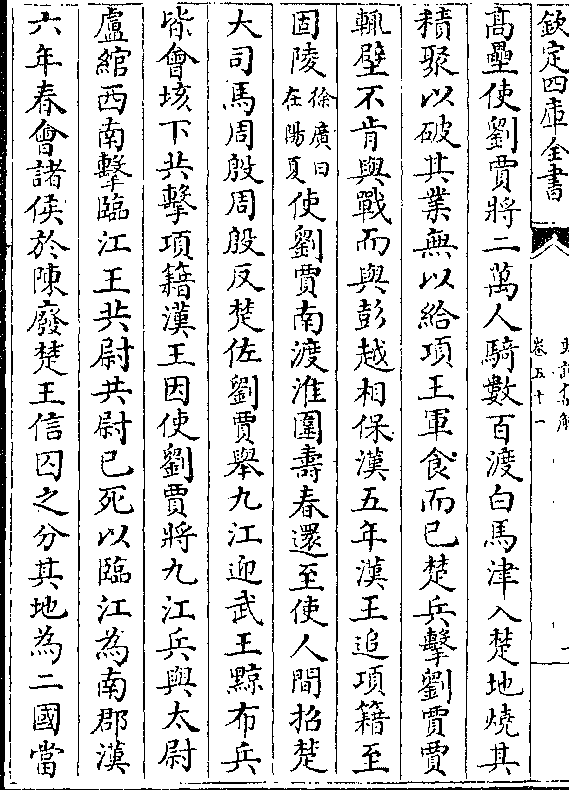 欽定四庫全書
卷五十一
髙壘使劉賈將二萬人騎數百渡白馬津入楚地燒其
積聚以破其業無以給項王軍食而已楚兵擊劉賈賈
輒壁不肯與戰而與彭越相保漢五年漢王追項籍至
固陵徐廣曰在陽夏使劉賈南渡淮圍壽春還至使人間招楚
大司馬周殷周殷反楚佐劉賈舉九江迎武王黥布兵
皆會垓下共擊項籍漢王因使劉賈將九江兵與太尉
盧綰西南擊臨江王共尉共尉已死以臨江為南郡漢
六年春會諸侯於陳廢楚王信囚之分其地為二國當